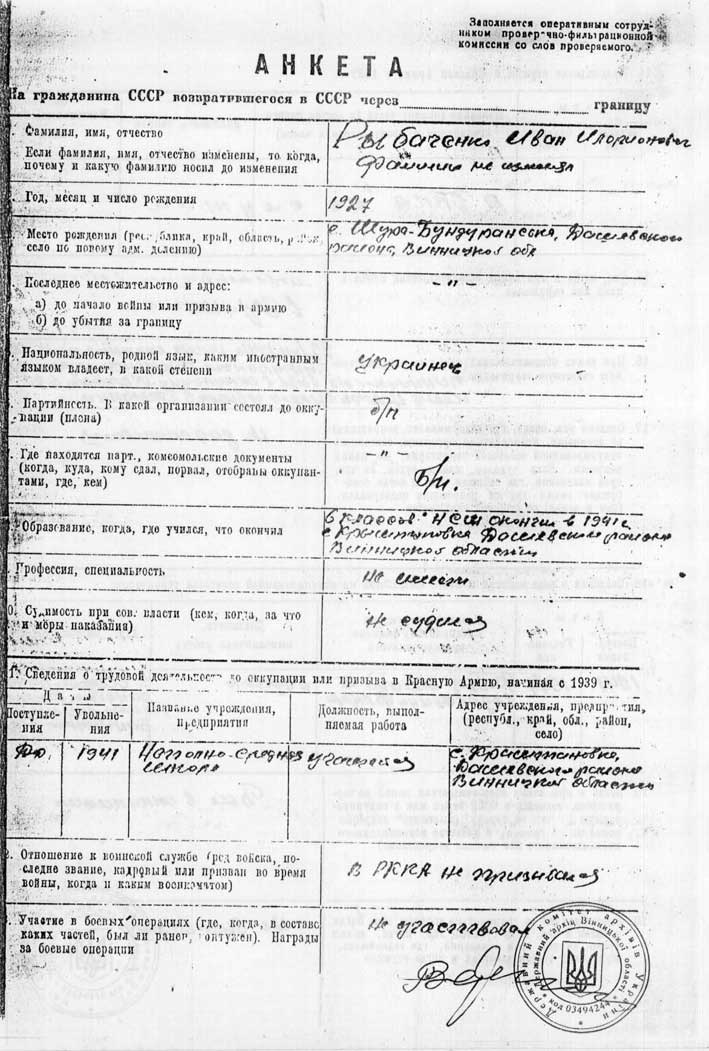 Заполняется оперативным сотруд-
ником проверочно-фильтрационной
комиссии со слов проверяемого.
АНКЕТА
На гражданина СССР возвратившегося в СССР через границу
Фамилия, имя, отчество
Если фамилия, имя, отчество изменены, то когда,
почему и какую фамилию носил до изменения
Рыбаченко Иван Иларионович
Фамилии не изменял
Год, месяц и число рождения
1927
Место рождения (республика, край, область, район,
село по новому адм. делению)
с. Шура-Бундуранская, Дашевского
района, Винницкой обл
Последнее местожительство и адрес:
а) до начало войны или призыва в армию
б) до убытия за границу
-"-
Национальность, родной язык, каким иностранным
языком владеет, в какой степени
украинец
Партийность. В какой организации состоял до окку-
пации (плена)
б/п
Где находятся парт., комсомольские документы
(когда, куда, кому сдал, порвал, отобраны оккупан-
тами, где, кем)
-"-
Б/п.
Образование, когда, где учился, что окончил
6 классов НСШ окончил в 1941 г
с Крыштоповка Дашевского района
Винницкой области
Профессия, специальность
не имеет
0. Судимость при сов. власти (кем, когда, за что
и меры наказания)
Не судился
1. Сведения о трудовой деятельности до оккупации или призыва в Красную Армию, начиная с 1939 г.
Даты
Поступле-
ния
Увольне-
ния
Название учреждения,
предприятия
Должность, выпол-
няемая работа
Адрес учреждения, предприятия,
(республ., край, обл., район,
село)
до
1941
Неполно-средняя
школа
учащийся
с. Крыштоповка,
Дашевского района
Винницкой области
2. Отношение к воинской службе (род войска, по-
следнее звание, кадровый или призван во время
войны, когда и каким военкоматом)
В РККА не призывался
3. Участие в боевых операциях (где, когда, в составе
каких частей, был ли ранен, контужен). Награды
за боевые операции
Не участвовал
Державний комітет архівів України
Державний архів Вінницької області
* код 03494244 *